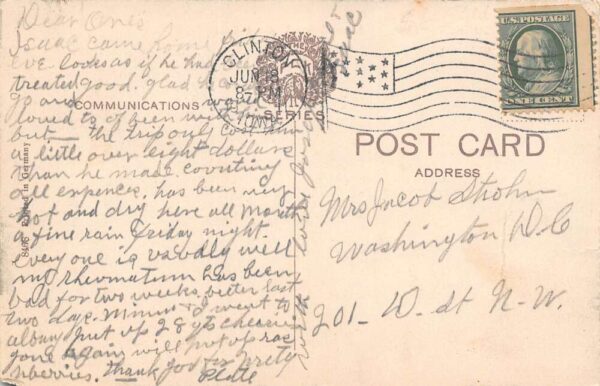 Dear Ones
Isaac came home
eve looks as if he had been
treated good. glad he
go and
loved to of been with
but — the trip only cost him
a little over eight dollars
than he made. counting
all expences. has been very
hot and dry here all month
a fine rain Friday night.
every one is usually well
my rheumatism has been
bad for two weeks, better last
two days. Minnie & I went to
albany put up 28 qts cherries
gone again will put up ras
berries. thank you for pretty
plate
with love
COMMUNICATIONS
SERIES
8406 Printed in Germany
CLINTON
JUN 18
8 PM
U.S. POSTAGE
ONE CENT
POST CARD
ADDRESS
Mrs Jacob Strohm
Washington D.C
201- D- St N-W.